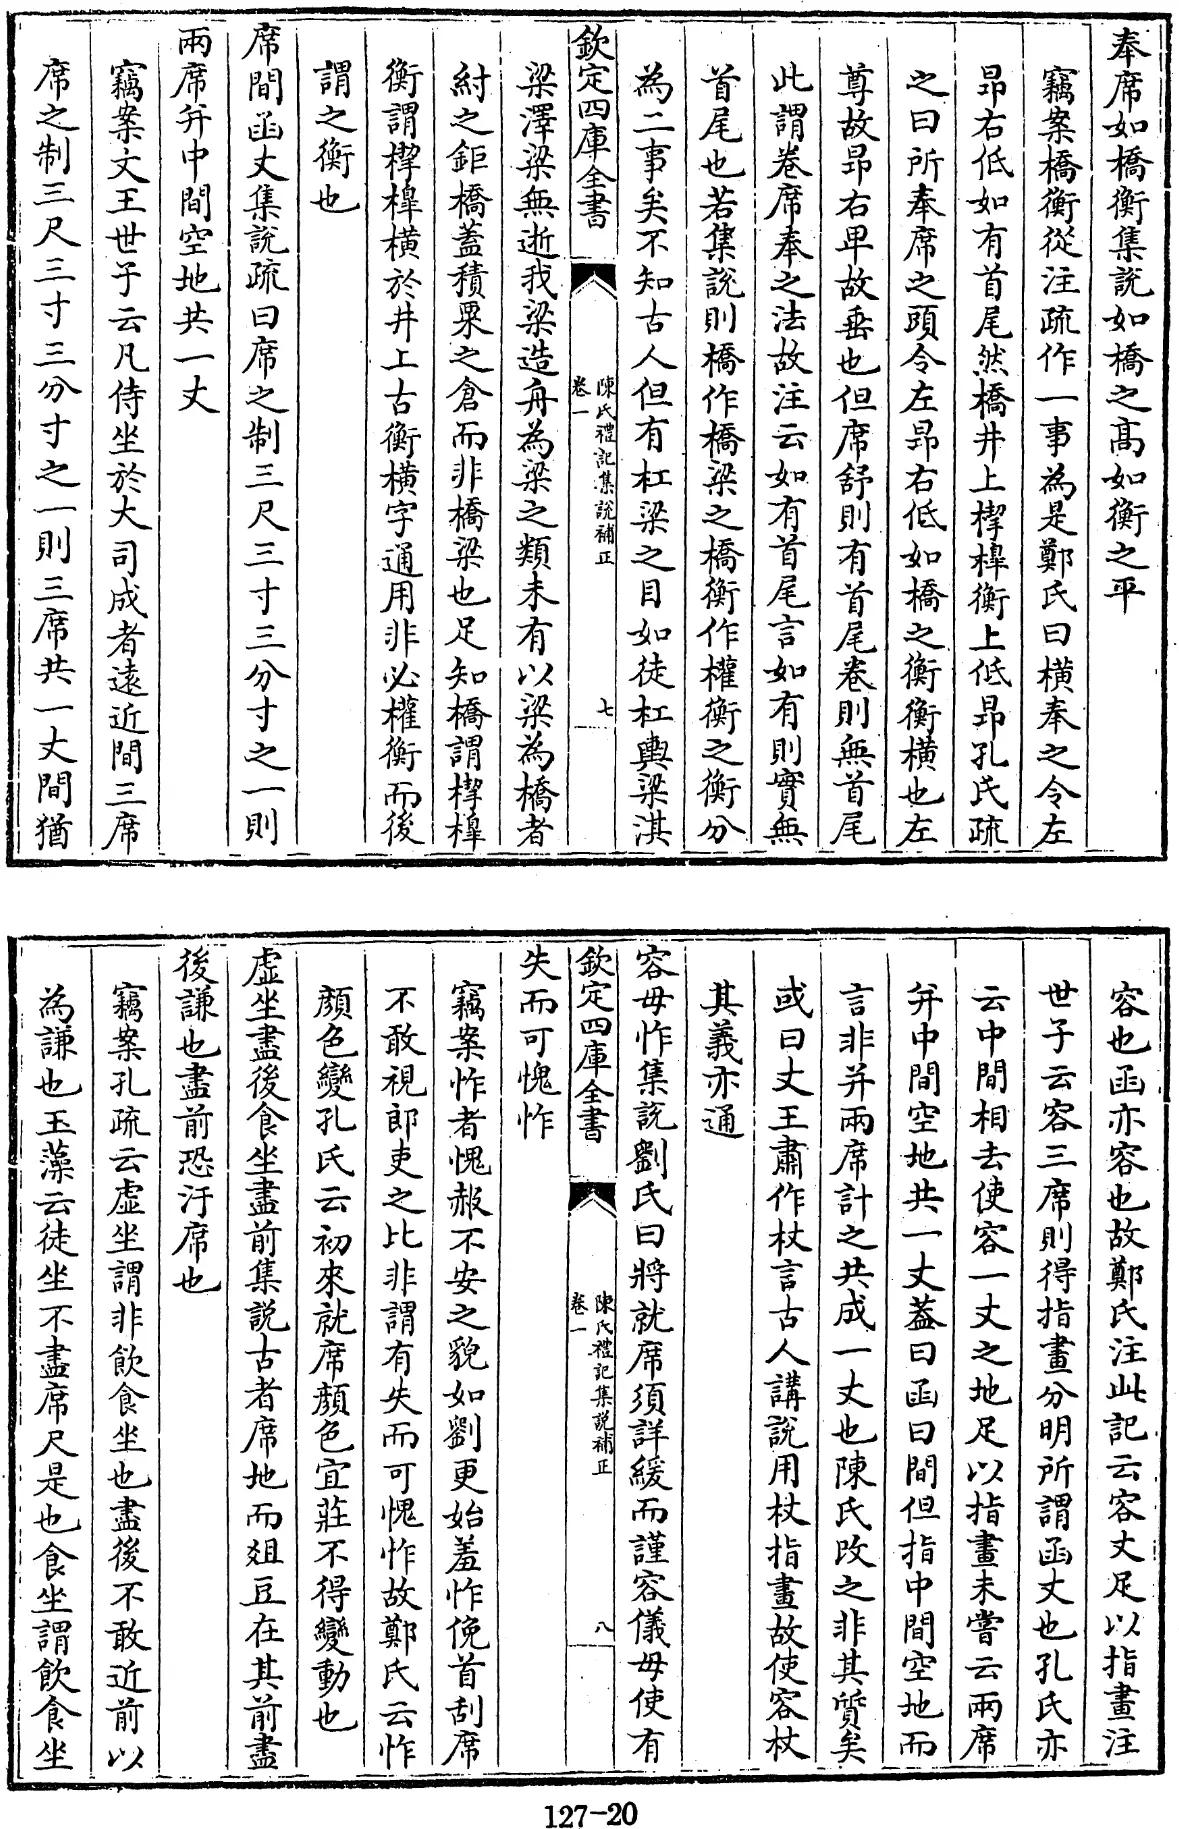 奉席如橋衡集說如橋之髙如衡之平
竊案橋衡從注疏作一事為是鄭氏曰横奉之令左
昻右低如有首尾然橋井上㮮槹衡上低昻孔氏疏
之曰所奉席之頭令左昻右低如橋之衡衡横也左
尊故昻右卑故垂也但席舒則有首尾卷則無首尾
此謂卷席奉之法故注云如有首尾言如有則實無
首尾也若集說則橋作橋梁之橋衡作權衡之衡分
為二事矣不知古人但有杠梁之目如徒杠輿梁淇
欽定四庫全書
陳氏禮記集說補正
卷一
七
梁澤梁無逝我梁造舟為梁之類未有以梁為橋者
紂之鉅橋蓋積粟之倉而非橋梁也足知橋謂㮮槹
衡謂㮮槹横於井上古衡横字通用非必權衡而後
謂之衡也
席間函丈集說疏曰席之制三尺三寸三分寸之一則
兩席并中間空地共一丈
竊案文王世子云凡侍坐於大司成者逺近間三席
席之制三尺三寸三分寸之一則三席共一丈間猶
容也函亦容也故鄭氏注此記云容丈足以指畫注
世子云容三席則得指畫分明所謂函丈也孔氏亦
云中間相去使容一丈之地足以指畫未嘗云兩席
并中間空地共一丈蓋曰函曰間但指中間空地而
言非并兩席計之共成一丈也陳氏改之非其質矣
或曰丈王肅作杖言古人講說用杖指畫故使容杖
其義亦通
容毋怍集說劉氏曰將就席須詳緩而謹容儀毋使有
欽定四庫全書
陳氏禮記集說補正
卷一
八
失而可愧怍
竊案怍者愧赧不安之貌如劉更始羞怍俛首刮席
不敢視郎吏之比非謂有失而可愧怍故鄭氏云怍
顔色變孔氏云初來就席顔色宜莊不得變動也
虛坐盡後食坐盡前集說古者席地而俎豆在其前盡
後謙也盡前恐汙席也
竊案孔疏云虛坐謂非飲食坐也盡後不敢近前以
為謙也玉藻云徒坐不盡席尺是也食坐謂飲食坐
127-20